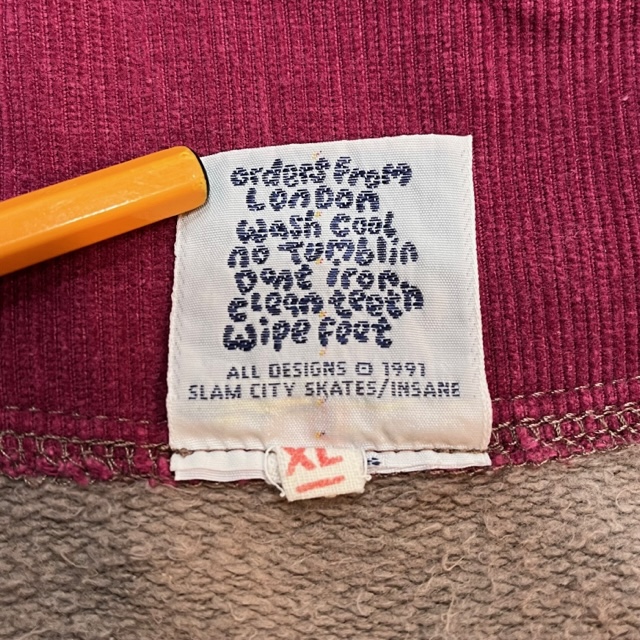 orders from
London
wash cool,
no tumblin
Dont Iron,
clean teeth
wipe feet
ALL DESIGNS © 1991
SLAM CITY SKATES/INSANE
XL